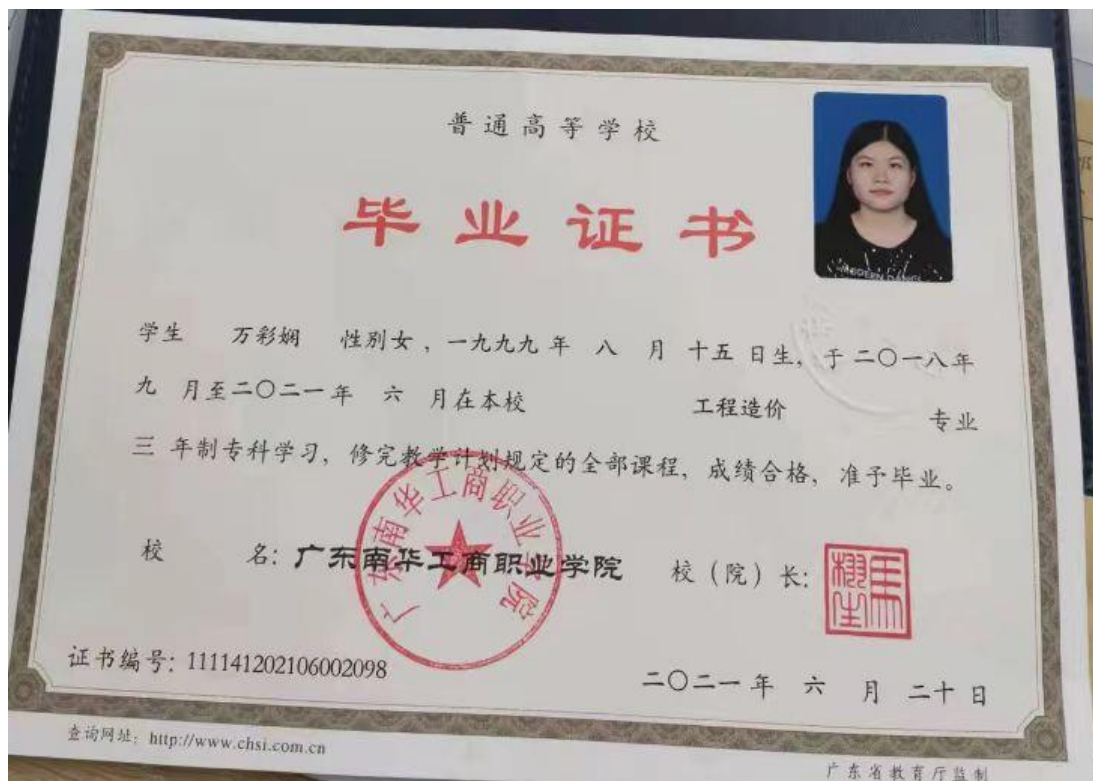 普通高等学校
毕业证书
MODERN DANCE
学生 万彩娴 性别女，一九九九年 八 月 十五 日生，于二〇一八年
九 月至二〇二一年 六 月在本校 工程造价 专业
三 年制专科学习，修完教学计划规定的全部课程，成绩合格，准予毕业。
校 名：广东南华工商职业学院 校（院）长：
广东南华工商职业学院
证书编号：111141202106002098
二〇二一年 六 月 二十日
查询网址：http://www.chsi.com.cn
广东省教育厅监制